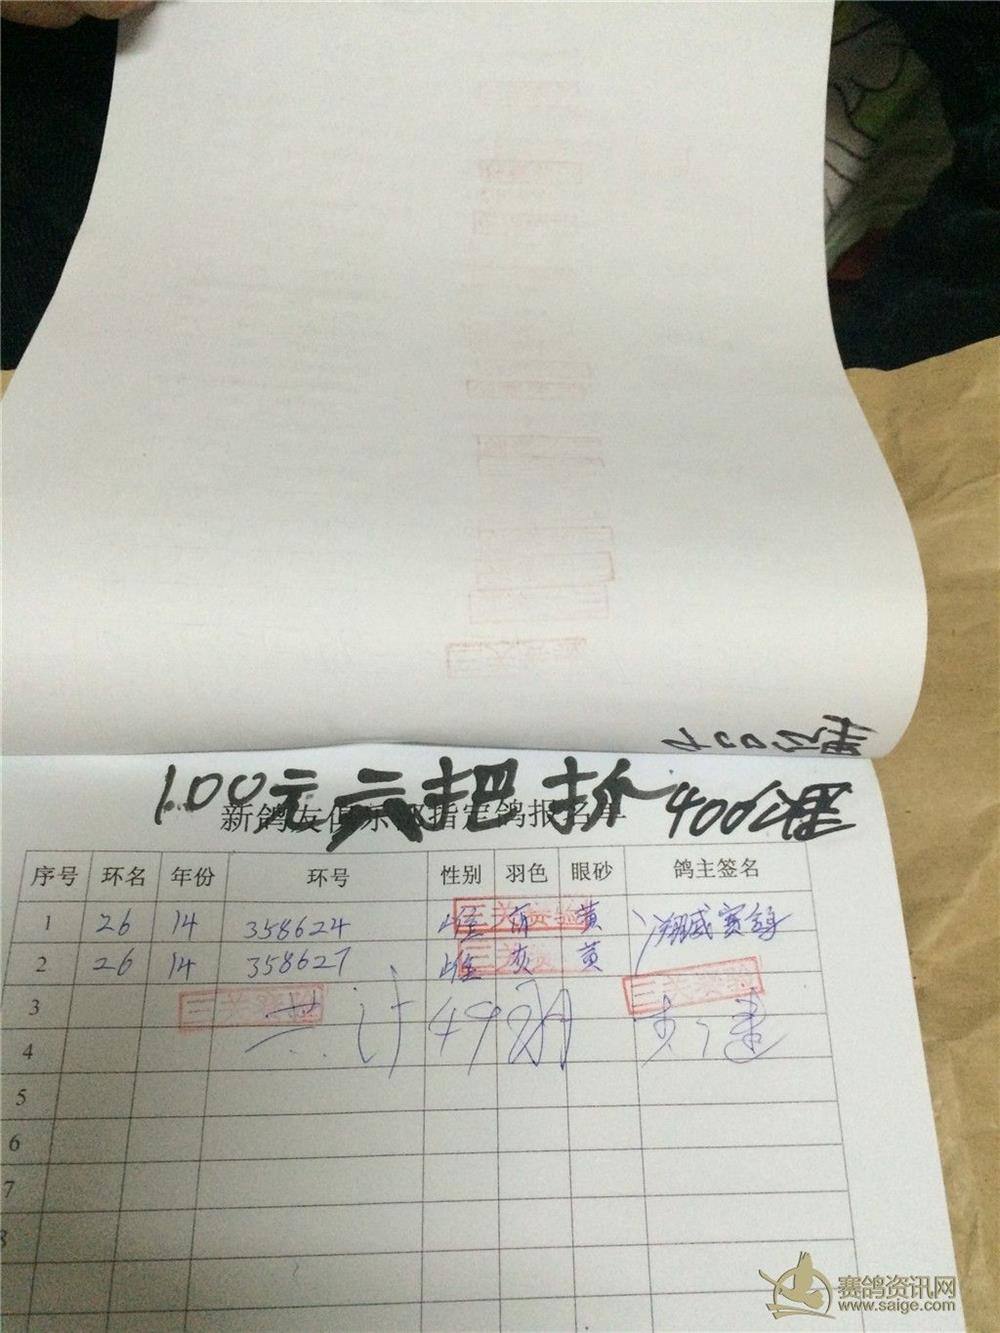 400公里
100元六把抓 400公里
新鸽友俱乐部指定鸽报名单
序号 环名 年份 环号 性别 羽色 眼砂 鸽主签名
1 26 14 358624 雌 灰 黄 翔威赛鸽
2 26 14 358627 雌 灰 黄
3
共计49羽
4
5
6
7
8
赛鸽资讯网
www.saige.com